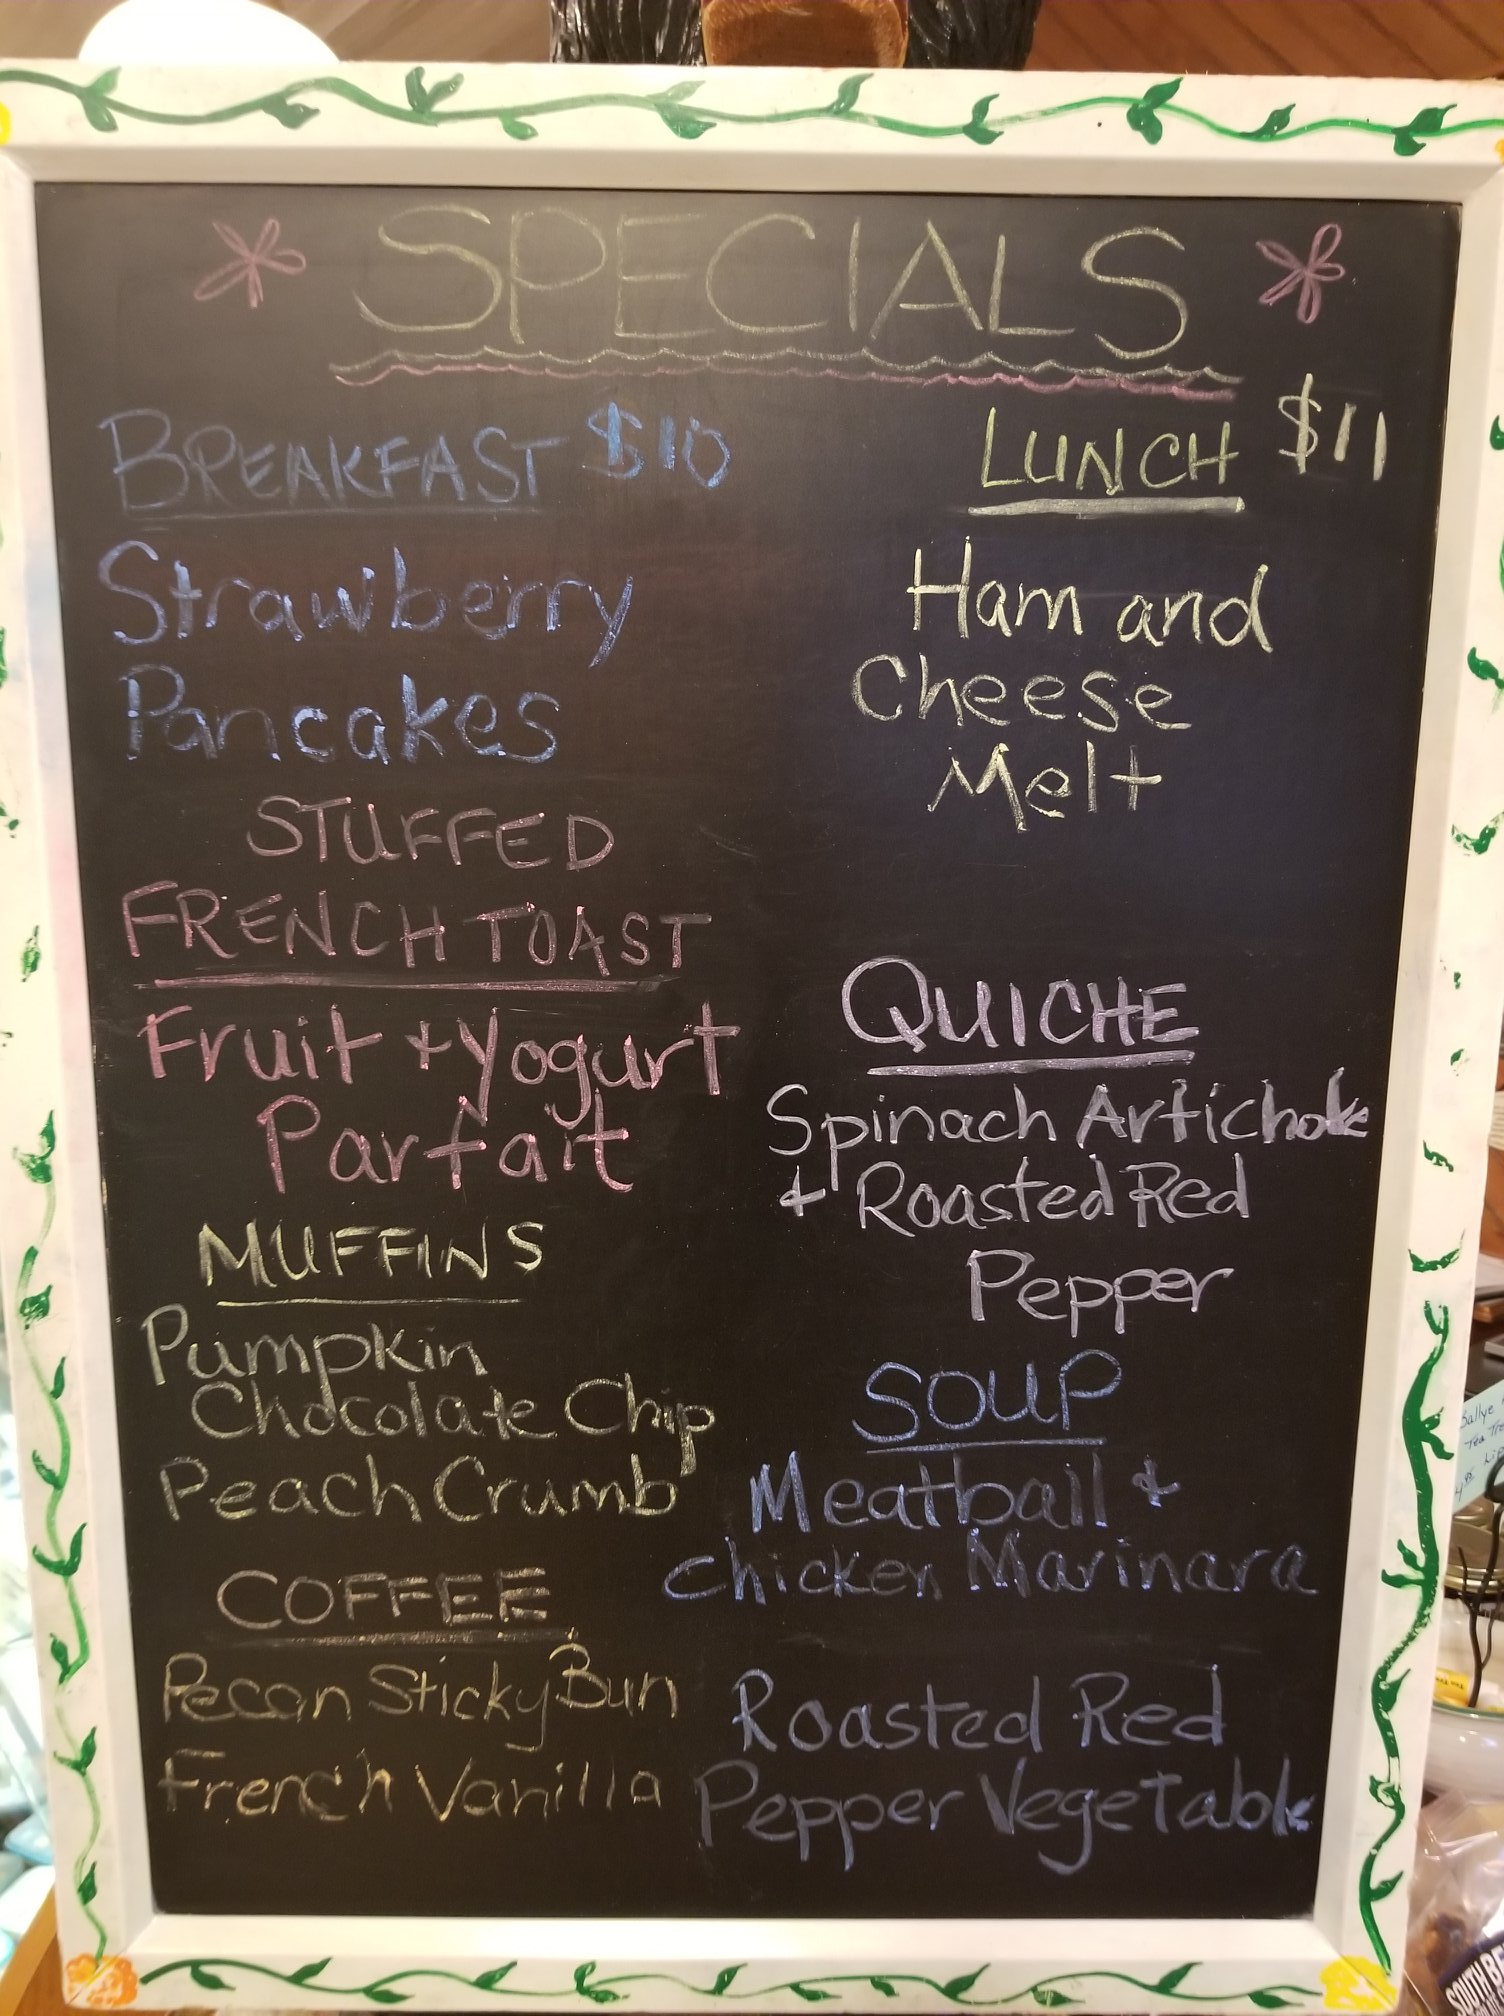 SPECIALS
BREAKFAST $10
Strawberry
Pancakes
STUFFED
FRENCH TOAST
Fruit + Yogurt
Parfait
MUFFINS
Pumpkin
Chocolate Chip
Peach Crumb
COFFEE
Pecan Sticky Bun
French Vanilla
LUNCH $11
Ham and
Cheese
Melt
QUICHE
Spinach Artichoke
+ Roasted Red
Pepper
SOUP
Meatball +
Chicken Marinara
Roasted Red
Pepper Vegetable
Tea Tre
SOUTH BE